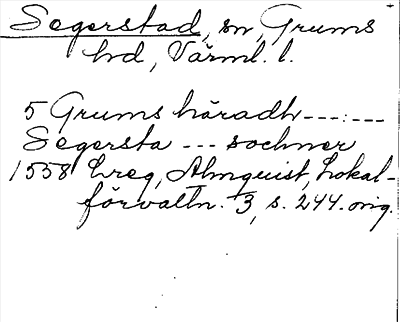 Segerstad, sn, Grums
hd, Värml. l.
5 Grums häradh ---:---
Segersta --- sochner
1558 Lreg, Almquist, Lokal-
förvaltn. 3, s. 244. orig.